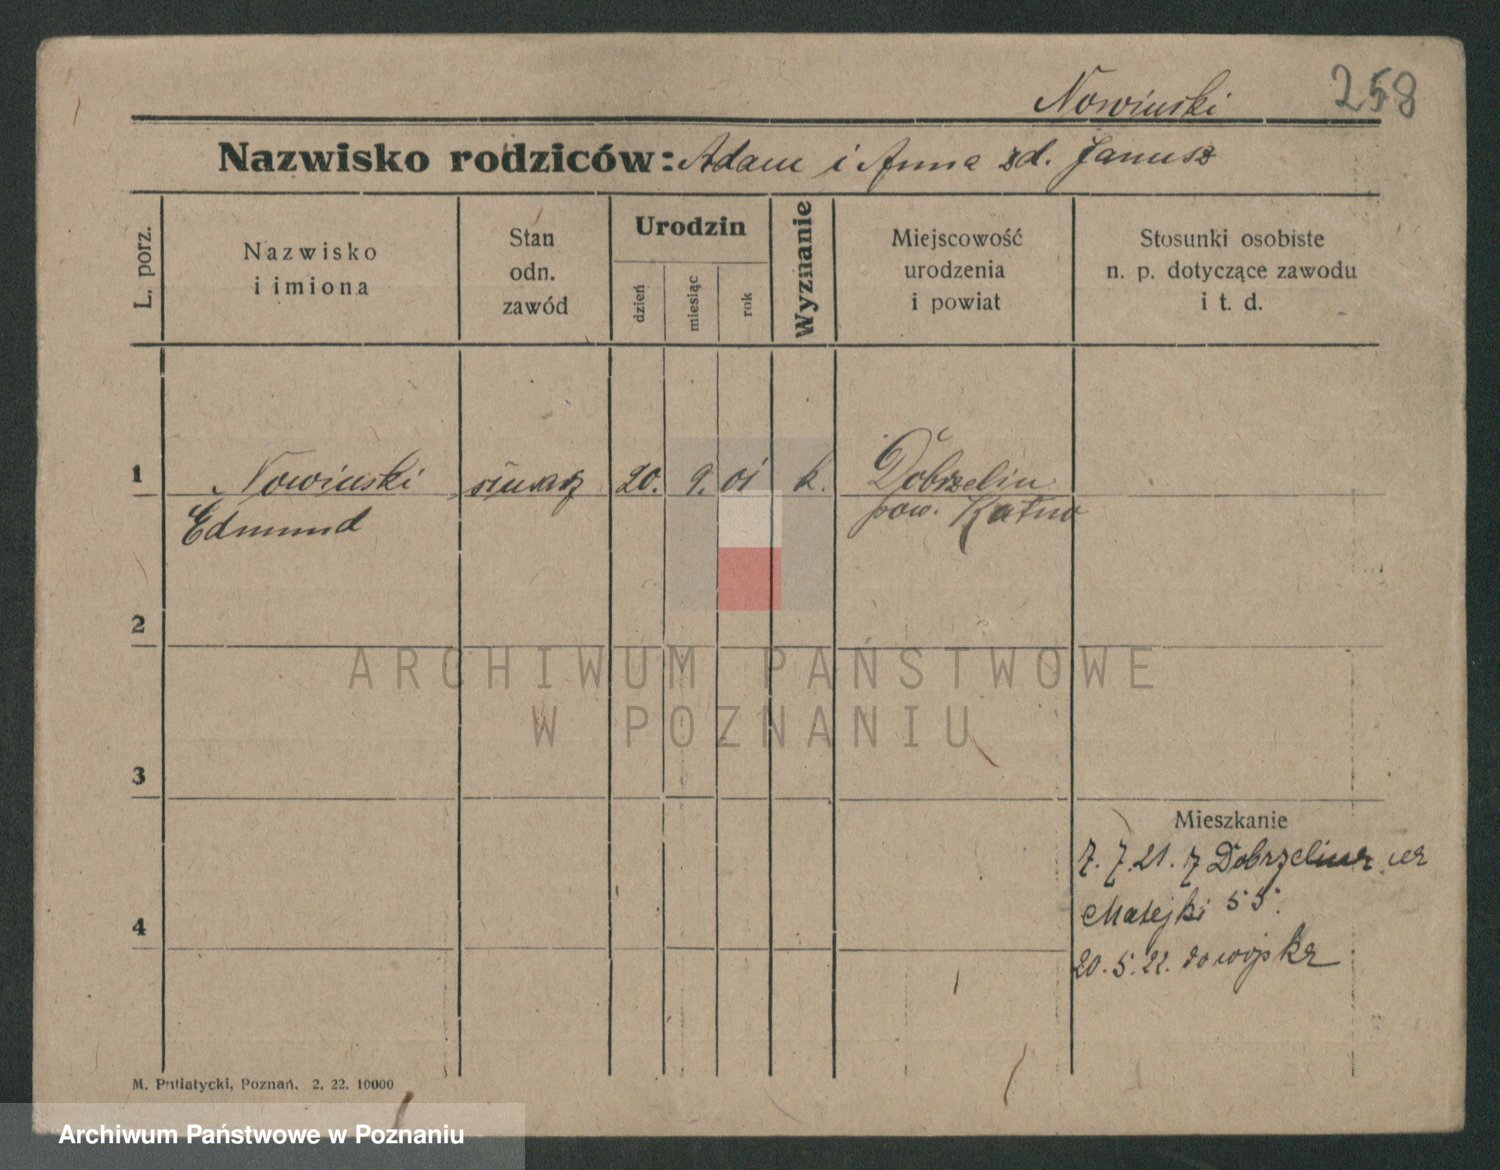 Nowinski 258
Nazwisko rodziców: Adam i Anna zd. Janusz
L. porz.
Nazwisko
i imiona
Stan
odn.
zawód
Urodzin
dzień
miesiąc
rok
Wyznanie
Miejscowość
urodzenia
i powiat
Stosunki osobiste
n. p. dotyczące zawodu
i t. d.
1 Nowinski 20. 9. 01 k. Dobrzelin
Edmund pow. Kutno
2
3
4
Mieszkanie
7. 7. 21. z Dobrzelina
Matejki 55.
20. 5. 22. do wojska
ARCHIWUM PAŃSTWOWE
W POZNANIU
M. Putiatycki, Poznań. 2. 22. 10000
Archiwum Państwowe w Poznaniu